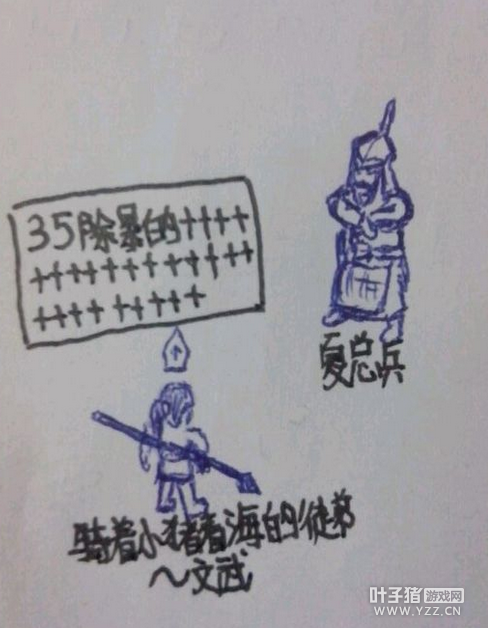 35除暴的++++
++++++++++++
++++ +++++
夏总兵
骑着小猪看海的徒弟
～文武
叶子猪游戏网
WWW.YZZ.CN